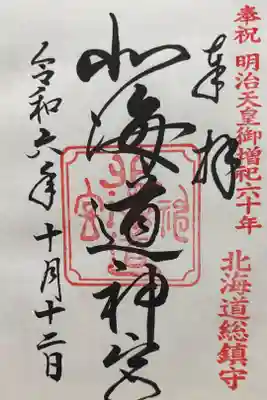 奉祝 明治天皇御増祀六十年
北海道総鎮守
奉拝
北海道神宮
令和六年十月十二日